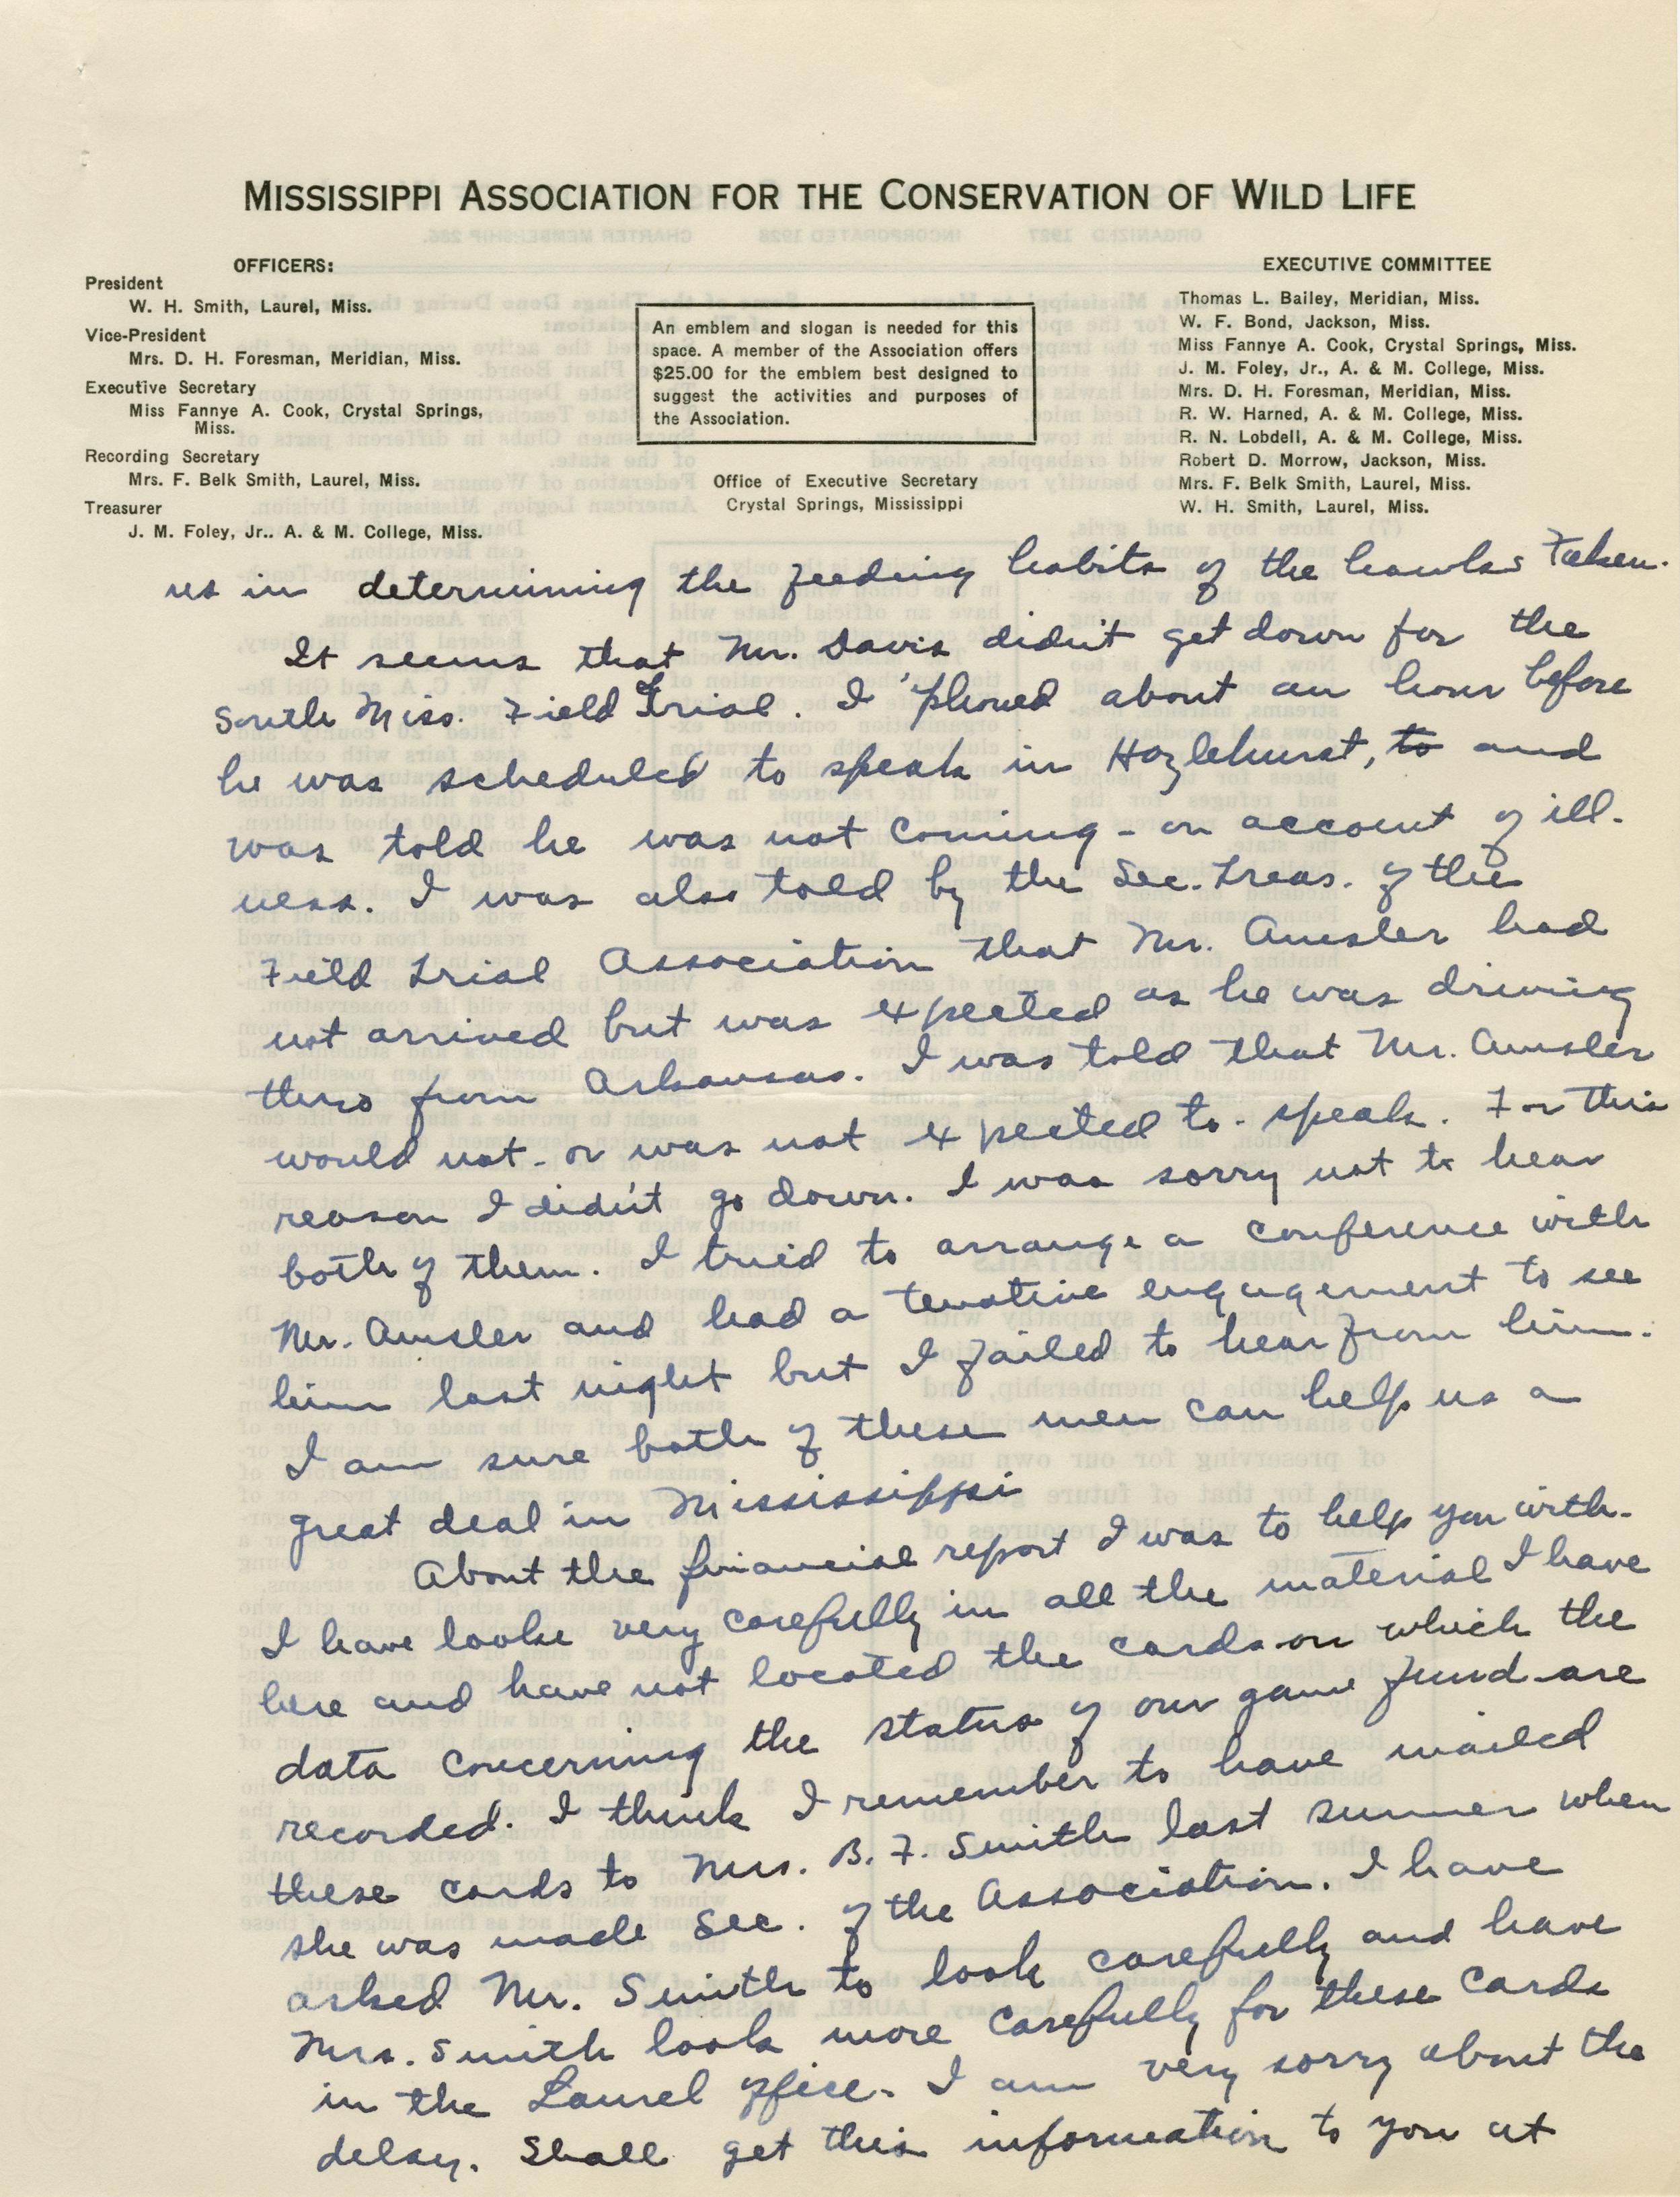 MISSISSIPPI ASSOCIATION FOR THE CONSERVATION OF WILD LIFE
OFFICERS:
President
W. H. Smith, Laurel, Miss.
Vice-President
Mrs. D. H. Foresman, Meridian, Miss.
Executive Secretary
Miss Fannye A. Cook, Crystal Springs,
Miss.
Recording Secretary
Mrs. F. Belk Smith, Laurel, Miss.
Treasurer
J. M. Foley, Jr.. A. & M. College, Miss.
An emblem and slogan is needed for this
space. A member of the Association offers
$25.00 for the emblem best designed to
suggest the activities and purposes of
the Association.
Office of Executive Secretary
Crystal Springs, Mississippi
EXECUTIVE COMMITTEE
Thomas L. Bailey, Meridian, Miss.
W. F. Bond, Jackson, Miss.
Miss Fannye A. Cook, Crystal Springs, Miss.
J. M. Foley, Jr., A. & M. College, Miss.
Mrs. D. H. Foresman, Meridian, Miss.
R. W. Harned, A. & M. College, Miss.
R. N. Lobdell, A. & M. College, Miss.
Robert D. Morrow, Jackson, Miss.
Mrs. F. Belk Smith, Laurel, Miss.
W. H. Smith, Laurel, Miss.
us in determining the feeding habits of the hawks taken.
It seems that Mr. Davis didn't get down for the
South Miss. Field Trial. I 'phoned about an hour before
he was scheduled to speak in Hazlehurst, to and
was told he was not coming - on account of ill-
ness. I was also told by the Sec. Treas. of the
Field Trial Association that Mr. Amsler had
not arrived but was expected as he was driving
thro from Arkansas. I was told that Mr. Amsler
would not - or was not expected to - speak. For this
reason I didn't go down. I was sorry not to hear
both of them. I tried to arrange a conference with
Mr. Amsler and had a tenative engagement to see
him last night but I failed to hear from him.
I am sure both of these men can help us a
great deal in Mississippi
About the financial report I was to help you with-
I have looke very carefully in all the material I have
here and have not located the cards on which the
data concerning the status of our game fund are
recorded. I think I remember to have mailed
these cards to Mrs. B. F. Smith last summer when
she was made Sec. of the Association. I have
asked Mr. Smith to look carefully and have
Mrs. Smith look more carefully for these cards
in the Laurel office. I am very sorry about the
delay. Shall get this information to you at